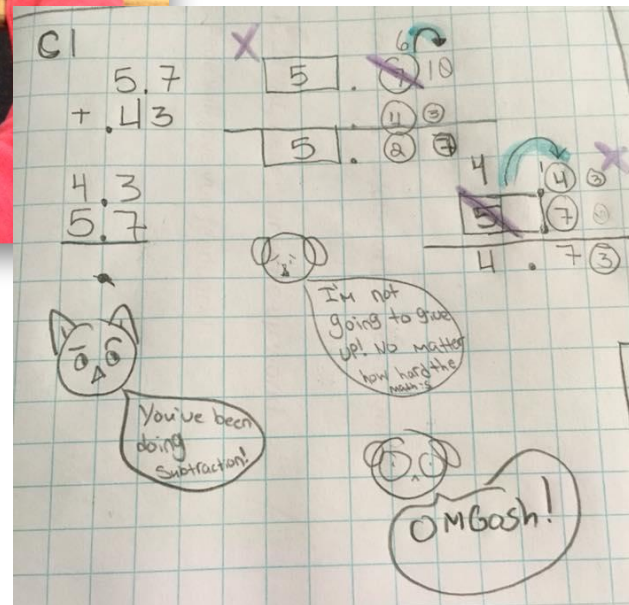 C1
5.7
+ .43
4.3
5.7
X
6
5 . 7 10
. 4 3
5 . 2 7
X
4 . 4 3
5 . 7
4 . 7 3
I'm not
going to give
up! No matter
how hard the
You've been
doing
subtraction!
OMGosh!